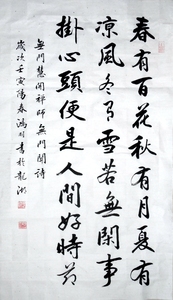 春有百花秋有月夏有
凉風冬有雪若無閑事
掛心頭便是人間好時節
無門慧開禅師無門關詩
歲次壬寅陽春鴻
書於龍湖